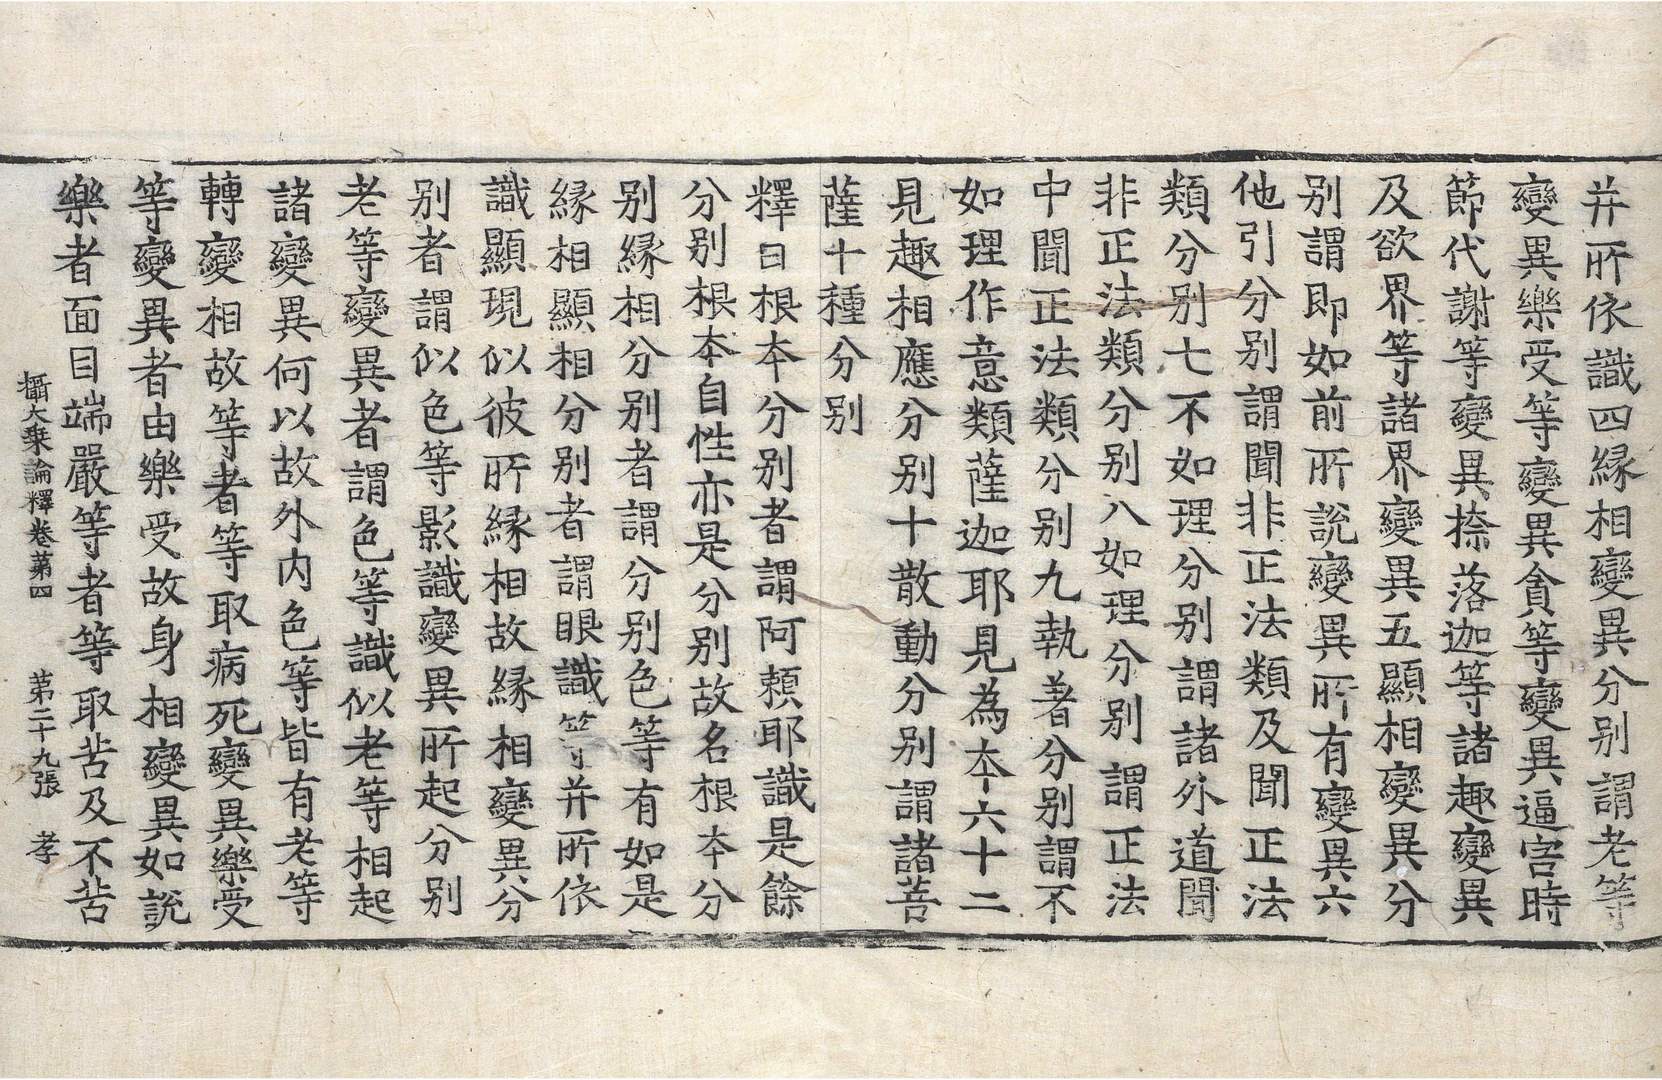 并所依識四縁相變異分别謂老等
變異樂受等變異貪等變異逼害時
節代謝等變異捺落迦等諸趣變異
及欲界等諸界變異五顯相變異分
别謂即如前所說變異所有變異六
他引分别謂聞非正法類及聞正法
類分别七不如理分别謂諸外道聞
非正法類分别八如理分别謂正法
中聞正法類分别九執著分别謂不
如理作意類薩迦耶見為本六十二
見趣相應分别十散動分别謂諸菩
薩十種分别
釋曰根本分别者謂阿頼耶識是餘
分别根本自性亦是分别故名根本分
别縁相分别者謂分别色等有如是
縁相顯相分别者謂眼識等并所依
識顯現似彼所縁相故縁相變異分
别者謂似色等影識變異所起分别
老等變異者謂色等識似老等相起
諸變異何以故外内色等皆有老等
轉變相故等者等取病死變異樂受
等變異者由樂受故身相變異如說
樂者面目端嚴等者等取苦及不苦
攝大乗論釋卷苐四　苐二十九張　孝